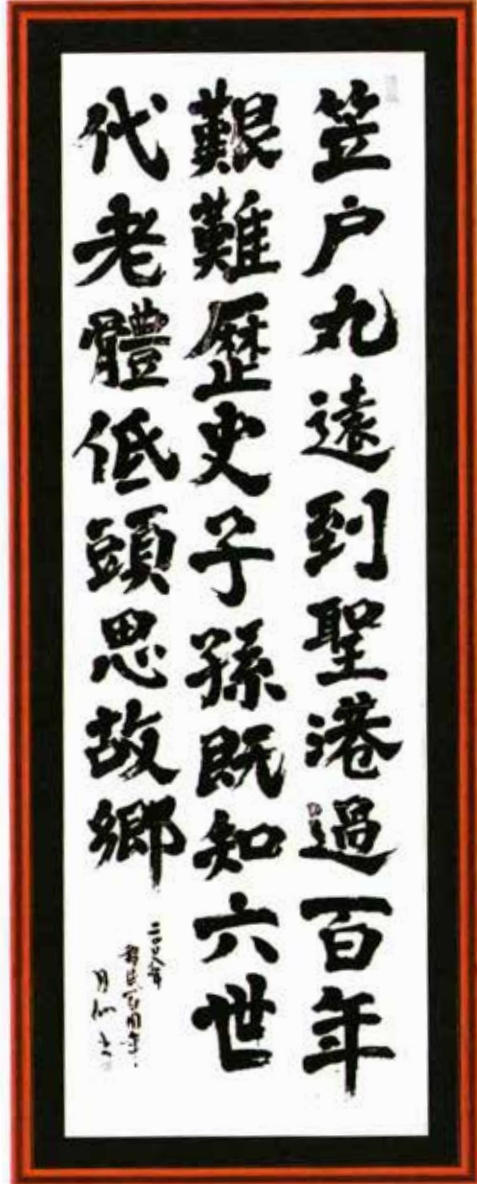 笠户丸遠到聖港過百年
艱難歷史子孫既知六世
代老體低頭思故鄉
二〇〇八年
移民百周年
月仙書